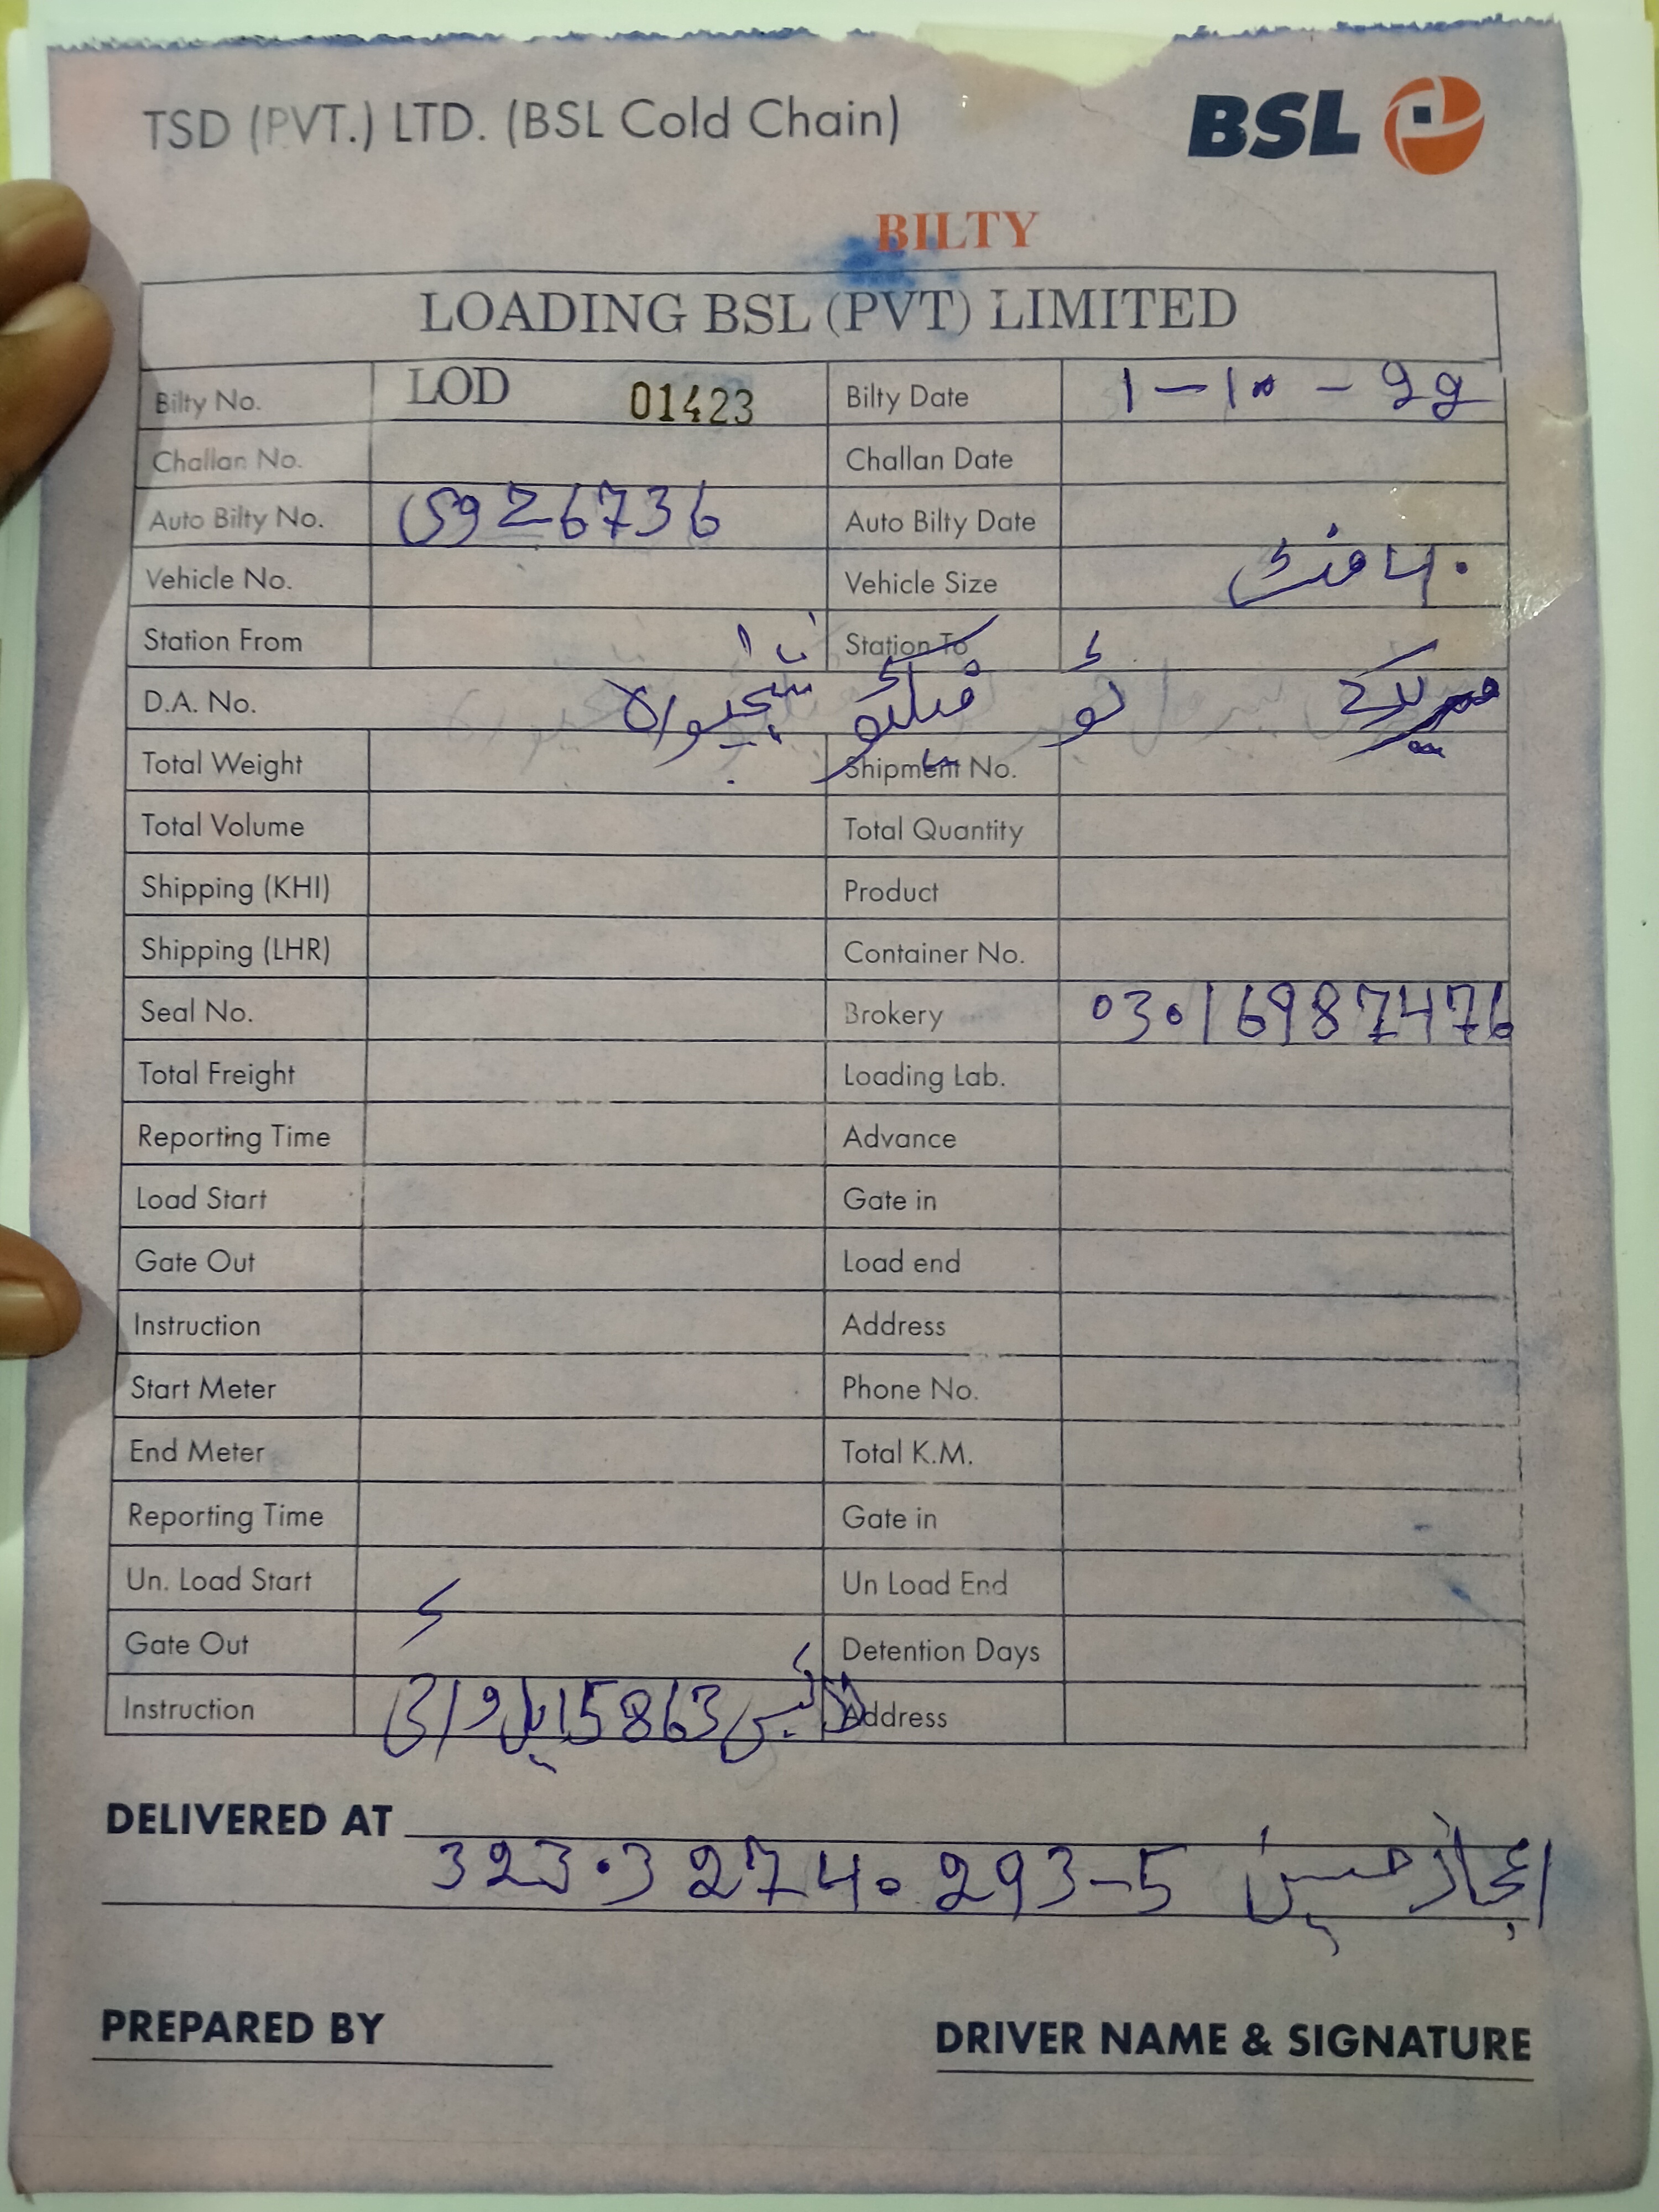 TSD (PVT.) LTD. (BSL Cold Chain) BSL
BILTY
LOADING BSL (PVT) LIMITED
Bilty No. LOD 01423 Bilty Date 1-10-22
Challan No. Challan Date
Auto Bilty No. 26736 Auto Bilty Date
Vehicle No. Vehicle Size 40 فٹ
Station From Station To
D.A. No. ٹو
Total Weight Shipment No.
Total Volume Total Quantity
Shipping (KHI) Product
Shipping (LHR) Container No.
Seal No. Brokery 03016987476
Total Freight Loading Lab.
Reporting Time Advance
Load Start Gate in
Gate Out Load end
Instruction Address
Start Meter Phone No.
End Meter Total K.M.
Reporting Time Gate in
Un. Load Start Un Load End
Gate Out Detention Days
Instruction 15863 Address
DELIVERED AT
اعجاز حسین 323032740293-5
PREPARED BY DRIVER NAME & SIGNATURE